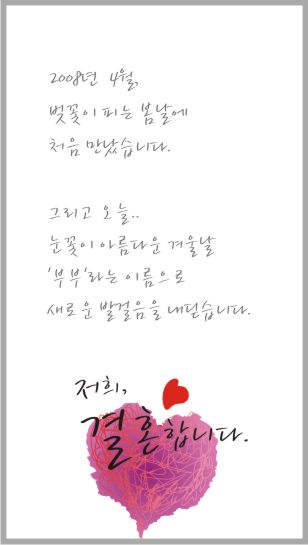 2008년 4월,
벚꽃이 피는 봄날에
처음 만났습니다.
그리고 오늘..
눈꽃이 아름다운 겨울날
'부부'라는 이름으로
새로운 발걸음을 내딛습니다.
저희,
결혼합니다.